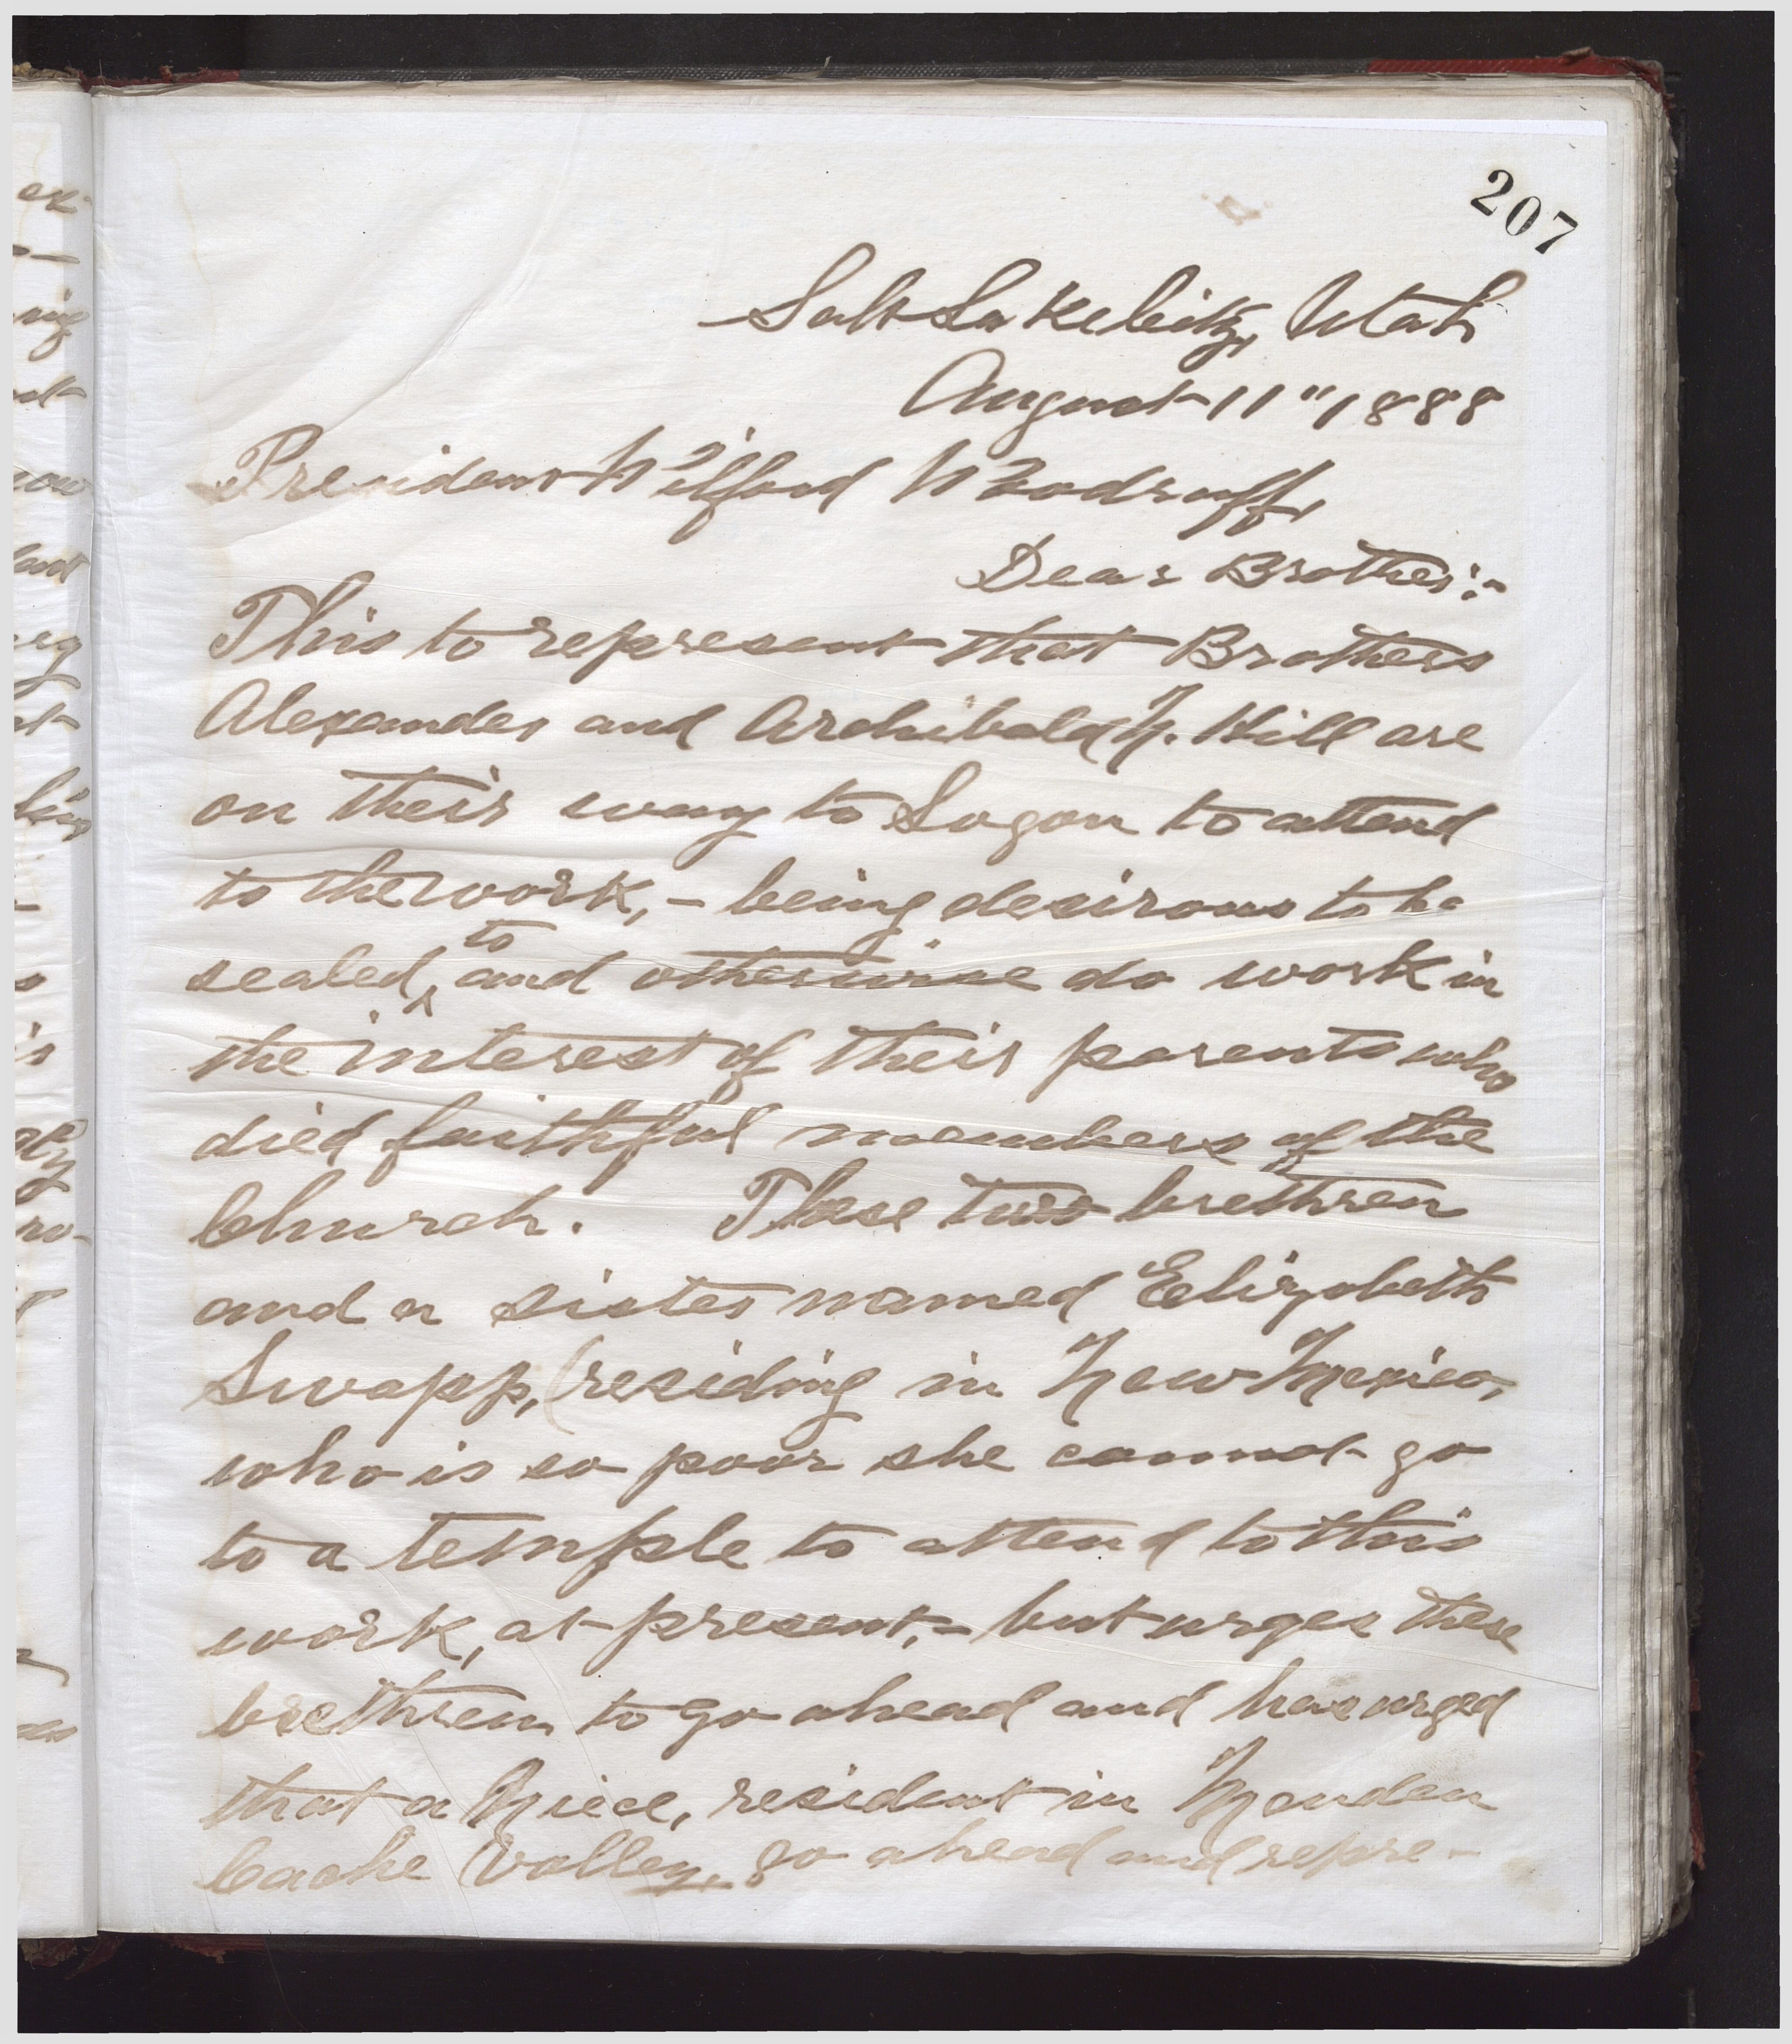 207
Salt Lake City, Utah
August 11" 1888
President Wilford Woodruff,
Dear Brother:-
This to represent that Brothers
Alexander and Archibald N. Hill are
on their way to Logan to attend
to the work, - being desirous to be
to
sealed, ^ and otherwise do work in
the interest of their parents who
died faithful members of the
Church. These two brethren
and a sister named Elizabeth
Swapp, (residing in New Mexico,
who is so poor she cannot go
to a temple to attend to this
work, at present, - but urges these
brethren to go ahead and has urged
that a Niece, resident in Menden
Cache Valley, go ahead and repre-